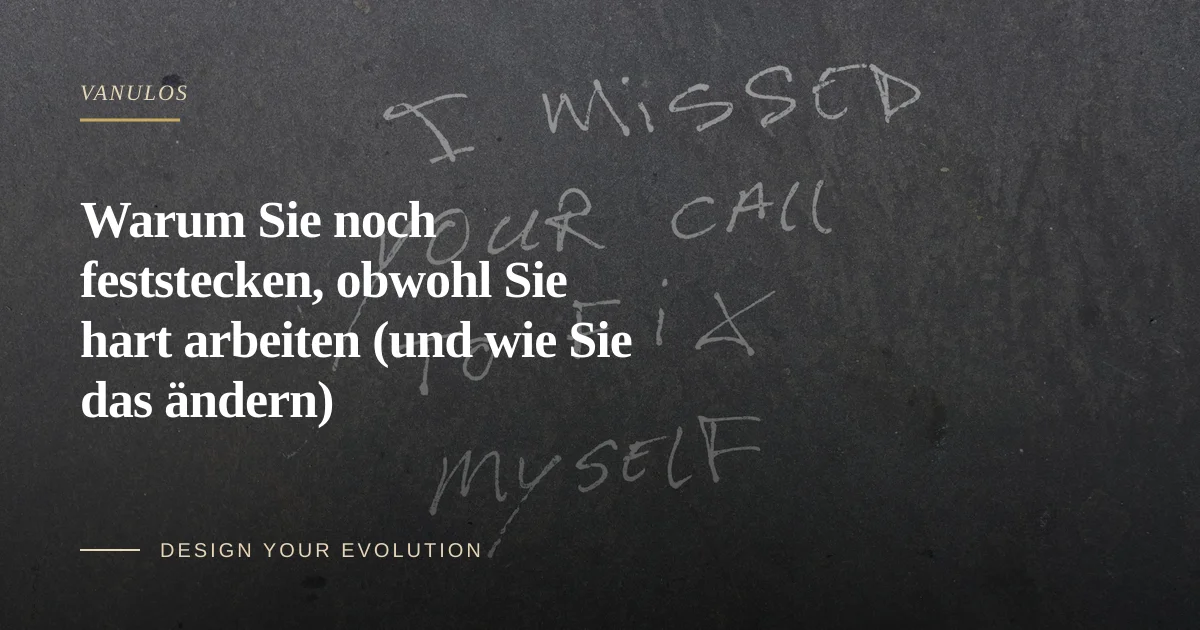 VANULOS
I MiSSED
YOUR CAll
TO FiX
MYSELF
Warum Sie noch
feststecken, obwohl Sie
hart arbeiten (und wie Sie
das ändern)
DESIGN YOUR EVOLUTION